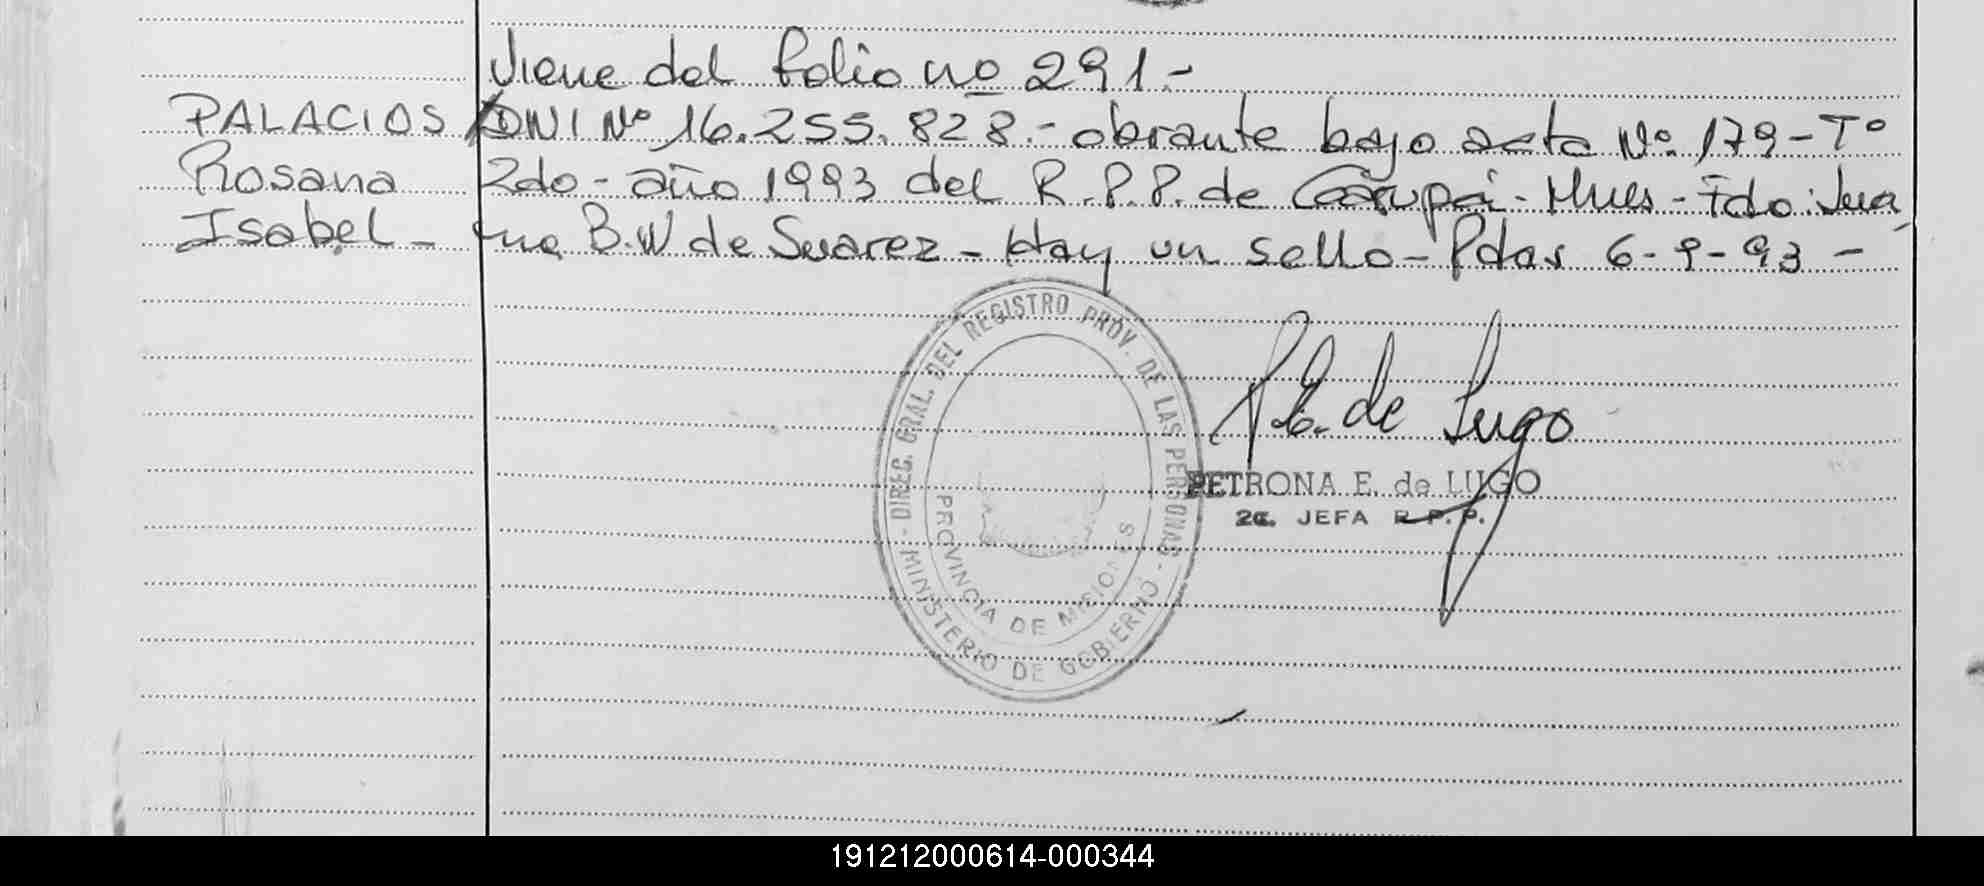 Viene del folio nº 291.-
PALACIOS DNI Nº 16.255.828.- obrante bajo acta Nº 179 - Tº
Rosana 2do - año 1993 del R.P.P. de Garupá - Mnes - Fdo: Jua
Isabel - na B.W de Suarez - Hay un sello - Pdas 6-9-93 -
DIREC. GRAL. DEL REGISTRO PROV. DE LAS PERSONAS - MINISTERIO DE GOBIERNO -
PROVINCIA DE MISIONES
P.E. de Lugo
PETRONA E. de LUGO
2a. JEFA R.P.P.
191212000614-000344